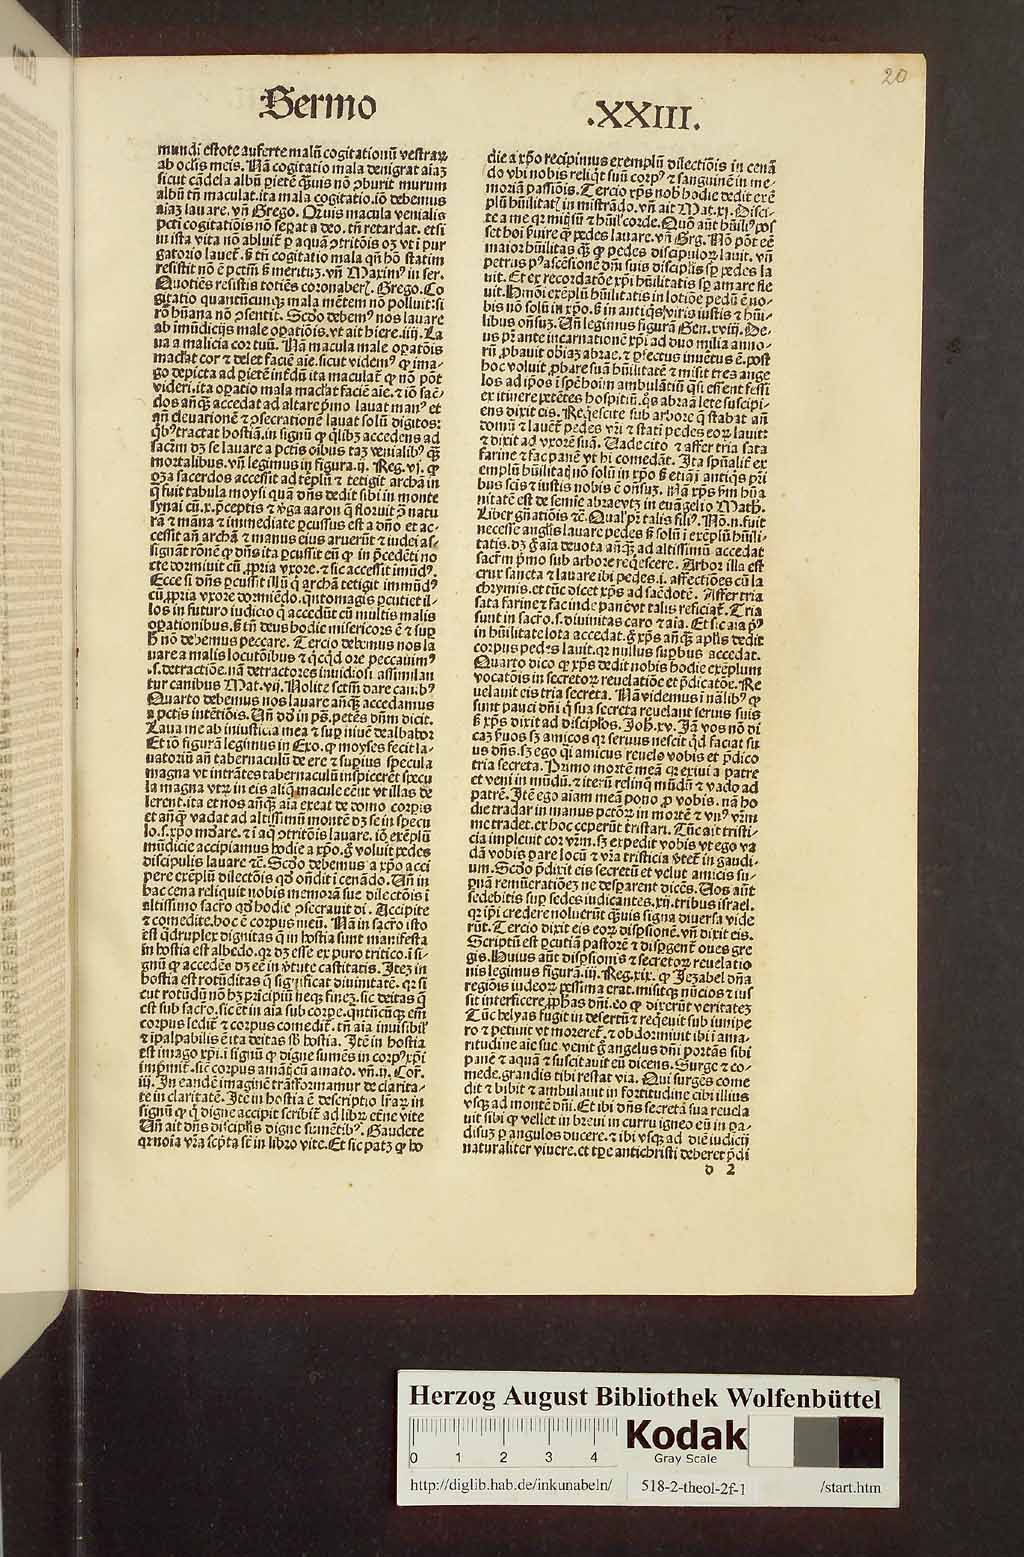 20
Sermo
.XXIII.
mundi estote auferte malũ cogitationũ vestraꝝ
ab oclis meis. Nã cogitatio mala denigrat aiaꝫ
sicut cãdela albũ pietẽ quis nõ ꝯburit murum
albũ tñ maculat. ita mala cogitatio. iõ debemus
aiaꝫ lauare. vñ Grego. Quis macula venialis
pcti cogitatiõis nõ sepat a deo. tñ retardat. etsi
in ista vita nõ abluit᷑ p aquã ꝯtritiõis oꝫ vt i pur
gatorio lauet᷑. ß tñ cogitatio mala qñ hõ statim
resistit nõ ẽ pctm̃ ß merituꝫ. vñ Maximꝰ in ser.
Quotiẽs resistis totiẽs coronaberꝭ. Grego. Co
gitatio quantũcunqꝫ mala mẽtem nõ polluit: si
rõ hũana nõ ꝯsentit. Scdo debemꝰ nos lauare
ab imũdicijs male opatiõis. vt ait hiere. iiij. La
ua a malicia cor tuũ. Nã macula male opatõis
maclat cor et delet faciẽ aie. sicut videmꝰ ꝙ ima-
go depicta ad pietẽ intẽdũ ita maculat᷑ ꝙ nõ põt
videri. ita opatio mala maclat faciẽ aie. et iõ sac̃-
dos añqꝫ accedat ad altare pͥmo lauat manꝰ et
añ eleuationẽ et ꝯsecrationẽ lauat solũ digitos:
qͥbꝰ tractat hostiã. in signũ ꝙ qͥlibꝫ accedens ad
sacm̃ dꝫ se lauare a pctis oibus taꝫ venialibꝰ qͣm
mortalibus. vñ legimus in figura. ij. Reg. vj. ꝙ
oꝫa sacerdos accessit ad tẽplũ et tetigit archã in
q̃ fuit tabula moysi quã dñs dedit sibi in monte
synai cũ. x. pͥceptis et vͥga aaron q̃ floruit ꝯ natu
rã et mãna et immediate pcussus est a dño et ac-
cessit añ archã et manus eius aruerũt et iudei as-
signãt rõnẽ ꝙ dñs ita pcussit eũ ꝙ in pͥcedẽti no
cte dormiuit cũ ꝓpria vxore. et sic accessit imũdꝰ.
Ecce si dñs pcussit illũ ꝙ archã tetigit immũdꝰ
cũ ꝓpria vxore dormiẽdo. qͣntomagis pcutiet il-
los in futuro iudicio q̃ accedũt cũ multis malis
opationibus. ß tñ deus hodie misericors ẽ et sup
h̃ nõ debemus peccare. Tercio debemus nos la
uare a malis locutõibus et qͥcqͥd ore peccauimꝰ
.s. detractiõe. nã detractores inuidiosi assimilan
tur canibus Mat. vij. Nolite sctm̃ dare can. bꝰ
Quarto debemus nos lauare añqꝫ accedamus
a pctis intẽtiõis. Uñ dd̃ in ps̃. petẽs dñm dicit.
Laua me ab iniusticia mea et sup niuẽ dealbabor
Et iõ figurã legimus in Exo. ꝙ moyses fecit la-
uatoriũ añ tabernaculũ de ere et supius specula
magna vt intrãtes tabernaculũ inspiceret᷑ specu
la magna vtꝝ in eis aliq̃ macule eẽnt vt illas de
lerent. ita et nos añqꝫ aia exeat de domo corpis
et añqꝫ vadat ad altissimũ montẽ dꝫ se in specu
lo. s. xpo mdare. et i aq̃ ꝯtritiõis lauare. iõ exẽplũ
mũdicie accipiamus hodie a xpo. ꝗ voluit pedes
discipulis lauare ⁊c̃. Scdo debemus a xpo acci
pere exẽplũ dilectiõis qd̃ oñdit i cenãdo. Uñ in
hac cena reliquit nobis memorã sue dilectõis i
altissimo sacro qd̃ hodie ꝯsecrauit di. Accipite
et comedite. hoc ẽ corpus meũ. Nã in sacro isto
ẽst qͣdruplex dignitas q̃ in hostia sunt manifesta
in hostia est albedo. qꝛ dꝫ esse ex puro tritico. i si-
gnũ ꝙ accedẽs dꝫ eẽ in vͥtute castitatis. Iteꝫ in
hostia est rotũditas q̃ significat diuinitatẽ. qꝛ si
cut rotũdũ nõ hꝫ pͥncipiũ neqꝫ fineꝫ. sic deitas q̃
est sub sacro. sic ẽt in aia sub corpe. qͣntũcũqꝫ em̃
corpus sedit᷑ et corpus comedit᷑. tñ aia inuisibilꝭ
et ipalpabilis ẽ ita deitas sb̃ hostia. Itẽ in hostia
est imago xpi. i signũ ꝙ digne sumẽs in corpꝰ xpi
impͥmit᷑. sic corpus amãtꝭ cũ amato. vñ. ij. Cor.
iij. In eandẽ imaginẽ trãsformamur de clarita-
te in claritatẽ. Itẽ in hostia ẽ descriptio lr̃aꝝ in
signũ ꝙ q̃ digne accipit scribit᷑ ad libꝝ et̃ne vite
Uñ ait dñs discipl̃is digne sumẽtibꝰ. Gaudete
qꝛ noĩa vr̃a scp̃ta st̃ in libro vite. Et sic patꝫ ꝙ ho
die a xpo recipimus exemplũ dilectiõis in cenã
do vbi nobis reliqͥt suũ corpꝰ et sanguinẽ in me-
moriã passiõis. Tercio xp̃s nob̃ hodie dedit exẽ
plũ hũilitatꝭ in mistrãdo. vñ ait Mat. xj. Disci-
te a me qꝛ mitꝭ sũ et hũilꝭ corde. Quõ aũt hũiliꝰ pos
set hoi ẞuire qͣꝫ pedes lauare. vñ Grg. Nõ põt eẽ
maior hũilitas qͣꝫ ꝙ pedes discipuloꝝ lauit. vñ
petrus pꝰ ascẽsionẽ dñi suis discipl̃is sp̃ pedes la
uit. Et ex recordatõe xpi hũilitatis sp̃ amare fle
uit. Hmõi exẽplũ hũilitatis in lotiõe pedũ ẽ no-
bis nõ solũ in xpo. ß in antiqͥs viris iustis et hũi-
libus oñsuꝫ. Uñ legimus figurã Gen. xviij. De-
us pr̃ ante incarnationẽ xpi ad duo milia anno-
rũ ꝓbauit obiaꝫ abrae. et pfectus inuẽtus ẽ. post
hoc voluit ꝓbare suã hũilitatẽ et misit tres ange
los ad ipos i spẽ hoĩm ambulãtiũ qͣsi essent fessi
ex itinere petẽtes hospitiũ. q̃s abraã lete suscipi-
ens dixit eis. Reqͥescite sub arbore q̃ stabat añ
domũ et lauet᷑ pedes vr̃i et stati pedes eoꝝ lauit
et dixit ad vxorẽ suã. Uade cito et affer tria sata
farine et fac panẽ vt hi comedãt. Ita spũalit᷑ ex
emplũ hũilitatꝭ nõ solũ in xpo ß etiã i antiqͥs pr̃i
bus scis et iustis nobis ẽ oñsuꝫ. Nã xp̃s ßm hũa
nitatẽ est de semie abrae vtꝫ in euãgelio Math̃.
Liber gñatiõis ⁊c̃. Qualꝭ pr̃ talis filiꝰ. Nõ. n. fuit
necesse angl̃is lauare pedes ß solũ i exẽplũ hũili-
tatis. dꝫ ꝗ aia deuota añqꝫ ad altissimũ accedat
sacr̃m pͥmo sub arbore reqͥescere. Arbor illa est
crux sancta et lauare ibi pedes. i. affectiões cũ la
chrymis. et tũc dicet xp̃s ad sac̃dotẽ. Affer tria
sata farine et fac inde panẽ vt talis reficiat᷑. Tria
sunt in sacro. s. diuinitas caro et aia. Et sic aia pͥꝰ
in hũilitate lota accedat. ꝗ xp̃s añqꝫ apl̃is dedit
corpus pedes lauit. qꝛ nullus supbus accedat.
Quarto dico ꝙ xp̃s dedit nobis hodie exẽplum
vocatõis in secretoꝝ reuelatiõe et pͥdicatõe. Re
uelauit eis tria secreta. Nã videmus i nãlibꝰ ꝙ
sunt pauci dñi q̃ sua secreta reuelant seruis suis
ß xp̃s dixit ad discipl̃os. Joh̃. xv. Jã vos nõ di
caꝫ ẞuos sꝫ amicos qꝛ seruus nescit qͥd faciat su
us dñs. sꝫ ego qͣsi amicus reuelo vobis et pͥdico
tria secreta. Primo mortẽ meã qꝛ exiui a patre
et veni in mũdũ. et iterũ relinq̃ mũdũ et vado ad
patrẽ. Itẽ ego aiam meã pono ꝓ vobis. nã ho
die tradar in manus pctõꝝ in mortẽ et vnꝰ vr̃m
me tradet. ex hoc ceperũt tristari. Tũc ait tristi-
cia impleuit cor vr̃m. sꝫ expedit vobis vt ego va
dã vobis pare locũ et vr̃a tristicia ṽtet᷑ in gaudi-
um. Scdo pͥdixit eis secretũ et velut amicis su-
pnã remũeratiõeꝫ ne desparent dicẽs. Uos aũt
sedebitis sup sedes iudicantes. xij. tribus israel.
qꝛ ipͥi credere noluerũt quis signa diuersa vide
rũt. Tercio dixit eis eoꝝ dispsionẽ. vñ dixit eis.
Scriptũ est pcutiã pastorẽ et dispgent᷑ oues gre
gis. Huius aũt dispsionis et secretoꝝ reuelatio
nis legimus figurã. iij. Reg. xix. ꝙ Jezabel dña
regiõis iudeoꝝ pessima erat. misitqꝫ nũcios et ius
sit interficere ꝓphas dñi. eo ꝙ dixerũt veritateꝫ
Tũc helyas fugit in desertũ et reqͥeuit sub iunipe
ro et petiuit vt moreret᷑. et obdormiuit ibi i ama-
ritudine aie sue. venit ꝗ angelus dñi portãs sibi
panẽ et aquã et suscitauit eũ dicens. Surge et co-
mede. grandis tibi restat via. Qui surgẽs come
dit et bibit et ambulauit in fortitudine cibi illius
vsqꝫ ad montẽ dñi. Et ibi dñs secreta sua reuela
uit sibi ꝙ vellet in breui in curru igneo eũ in pa-
disuꝫ p angulos ducere. et ibi vsqꝫ ad diẽ iudicij
naturaliter viuere. et tpe antichristi deberet pͥdi
d 2
Herzog August Bibliothek Wolfenbüttel
0 1 2 3 4
Kodak
Gray Scale
http://diglib.hab.de/inkunabeln/
518-2-theol-2f-1
/start.htm